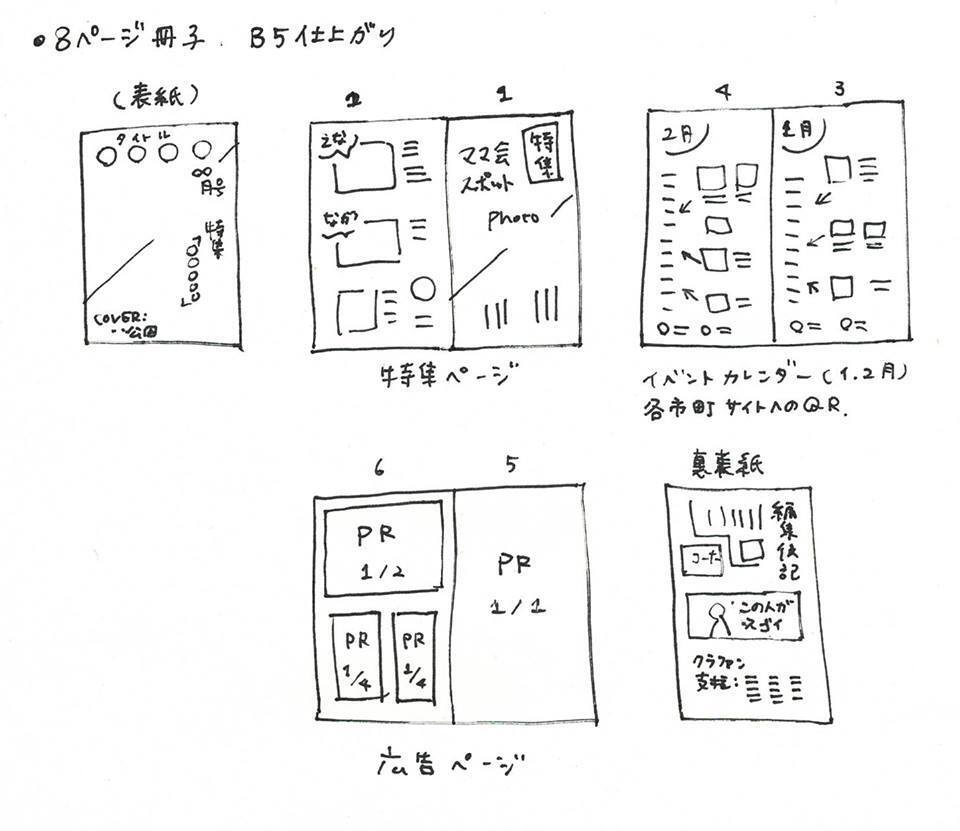 ・8ページ冊子. B5仕上がり
(表紙)
タイトル
○○○○
∞
月号
特集
「○○○○○」
COVER:
〃公園
2
1
えな
なか
特集
ママ会
スポット
photo
特集ページ
4
3
2月
1月
イベントカレンダー(1.2月)
各市町サイトへのQR.
6
5
PR
1/2
PR
1/4
PR
1/4
PR
1/1
広告ページ
裏表紙
編集後記
コーナー
この人が
スゴイ
クラファン
支援: